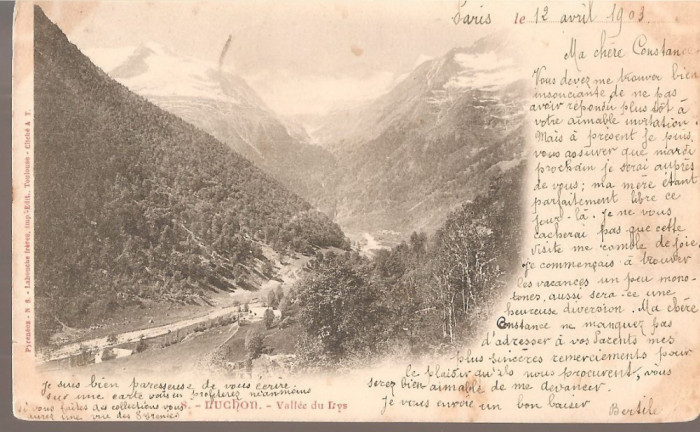 Paris le 12 avril 1903.
Ma chère Constance
Vous devez me trouver bien
insonciante de ne pas
avoir répondu plus tôt à
votre aimable invitation.
Mais à présent je puis
vous assurer que mardi
prochain je serai auprès
de vous; ma mère étant
parfaitement libre ce
jour-là. Je ne vous
cacherai pas que cette
visite me comble de joie,
je commençais à trouver
les vacances un peu mono-
tones, aussi sera-ce une
heureuse diversion. Ma chère
Constance ne manquez pas
d'adresser à vos parents mes
plus sincères remerciements pour
le plaisir qu'ils nous procurent, vous
serez bien aimable de me devancer.
Je vous envoie un bon baiser
Bertile
Je suis bien paresseuse de vous écrire
sur une carte vous en profiterez néanmoins
si vous faites des collections vous
aurez une vue des Pyrénées
8. - LUCHON. - Vallée du Lys
Pyrénées - B 8. - Labouche frères, imp. Edit., Toulouse - Cliché A. T.